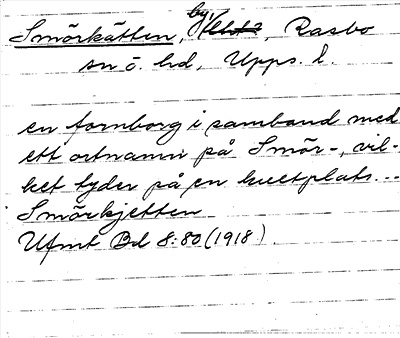 Smörkätten, by, Rasbo
sn ö. hd, Upps. l.
en fornborg i samband med
ett ortnamn på Smör-, vil-
ket tyder på en kultplats...
Smörkjetten
Ufmt Bd 8:80 (1918)